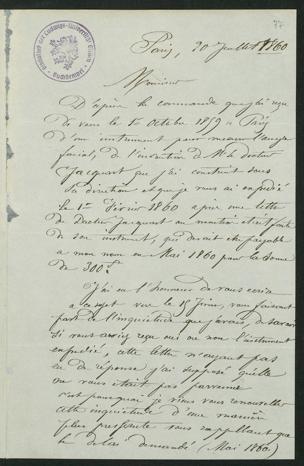 77
Paris, 20 Juillet 1860
Monsieur
D'après la commande que j'ai reçu
de vous le 1er Octobre 1859 à Paris
d'un instrument pour mesurer l'angle
facial, de l'invention de Mr le docteur
Jacquart que j'ai construit sous
sa direction et que je vous ai expédié
le 1er Février 1860 après une lettre
de Docteur Jacquart
de son instrument, qui devait être payable
a mon nom en Mai 1860 pour la somme
de 300 f
J'ai eu l'honneur de vous écrire
a ce sujet vers le 15 Juin, vous faisant
part de l'inquiétude que j'avais, de savoir
si vous aviez reçu oui ou non l'instrument
expédié, cette lettre n'ayant pas
eu de réponse j'ai supposé qu'elle
ne vous était pas parvenue
c'est pourquoi je viens vous renouveller
cette inquiétude d'une manière
plus pressante vous rappellant que
le délai demandé (Mai 1860)